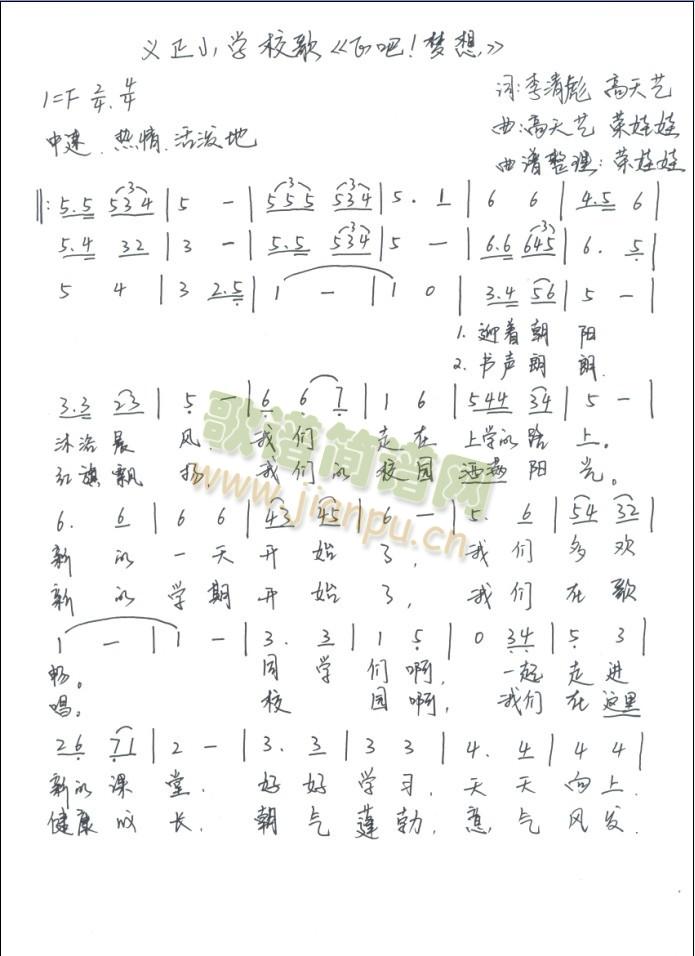 义正小学校歌《飞吧！梦想》
1=F 2/4、4/4
词:李清彪 高天艺
中速、热情、活泼地
曲:高天艺 荣娃娃
曲谱整理:荣娃娃
‖: 5.5 534 | 5 - | 555 534 | 5. 1 | 6 6 | 4.5 6 |
5.4 32 | 3 - | 5.5 534 | 5 - | 6.6 645 | 6. 5 |
5 4 | 3 2.5 | 1 - | 1 0 | 3.4 56 | 5 - |
1. 迎着朝 阳
2. 书声朗 朗.
3.3 23 | 5 - | 6 6 7 | 1 6 | 544 34 | 5 - |
沐浴晨 风, 我们 走在 上学的路 上。
红旗飘 扬, 我们的 校园 洒满阳 光。
6. 6 | 6 6 | 43 45 | 6 - | 5. 6 | 54 32 |
新 的 一 天 开 始 了, 我 们 多 欢
新 的 学 期 开 始 了, 我 们 在 歌
1 - | 1 - | 3. 3 | 1 5 | 0 34 | 5 3 |
畅。 同 学 们 啊, 一起 走 进
唱。 校 园 啊, 我们 在 这里
26 71 | 2 - | 3. 3 | 3 3 | 4. 4 | 4 4 |
新的 课 堂. 好 好 学 习, 天 天 向 上.
健康 成 长. 朝 气 蓬 勃, 意 气 风 发.
歌谱简谱网
www.jianpu.cn